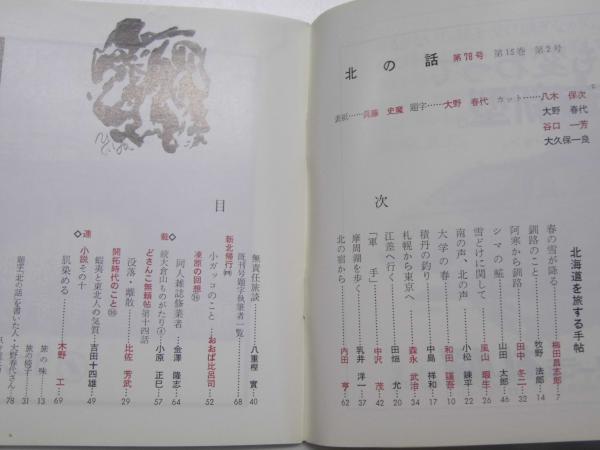 北の話 第78号 第15巻 第2号
表紙……呉藤 史魔 題字……大野 春代 カット……八木 保次
大野 春代
谷口 一芳
大久保一良
目次
北海道を旅する手帖
春の雪が降る……梅田昌志郎…7
釧路のこと……牧野 法郎…14
阿寒から釧路……田中 冬二…32
シマの鯎……山田 太郎…46
雪どけに関して……風山 瑕生…26
南の声、北の声……小松 錬平…22
大学の春……和田 謹吾…10
積丹の釣り……中島 祥和…17
札幌から東京へ……森永 武治…34
江差へ行く……田畑 允…20
「軍手」……中沢 茂…42
摩周湖を歩く……乳井 洋一…37
北の宿から……内田 亨…62
無責任放談……八重樫 實…40
既刊号題字執筆者一覧……68
新北帰行
小ガッコのこと……おおば比呂司…52
凍原の回想
同人雑誌修業者……金澤 隆志…64
◇連載◇
続大倉山ものがたり……小原 正巳…57
どさんこ無頼帖 第十四話
没落・離散……比佐 芳武…29
開拓時代のこと
蝦夷と東北人の気質……吉田十四雄…49
小説 その十
肌染める……木野 工…69
旅の味……13
旅の椅子……31
題字「北の話」を書いた人・大野春代さん…78